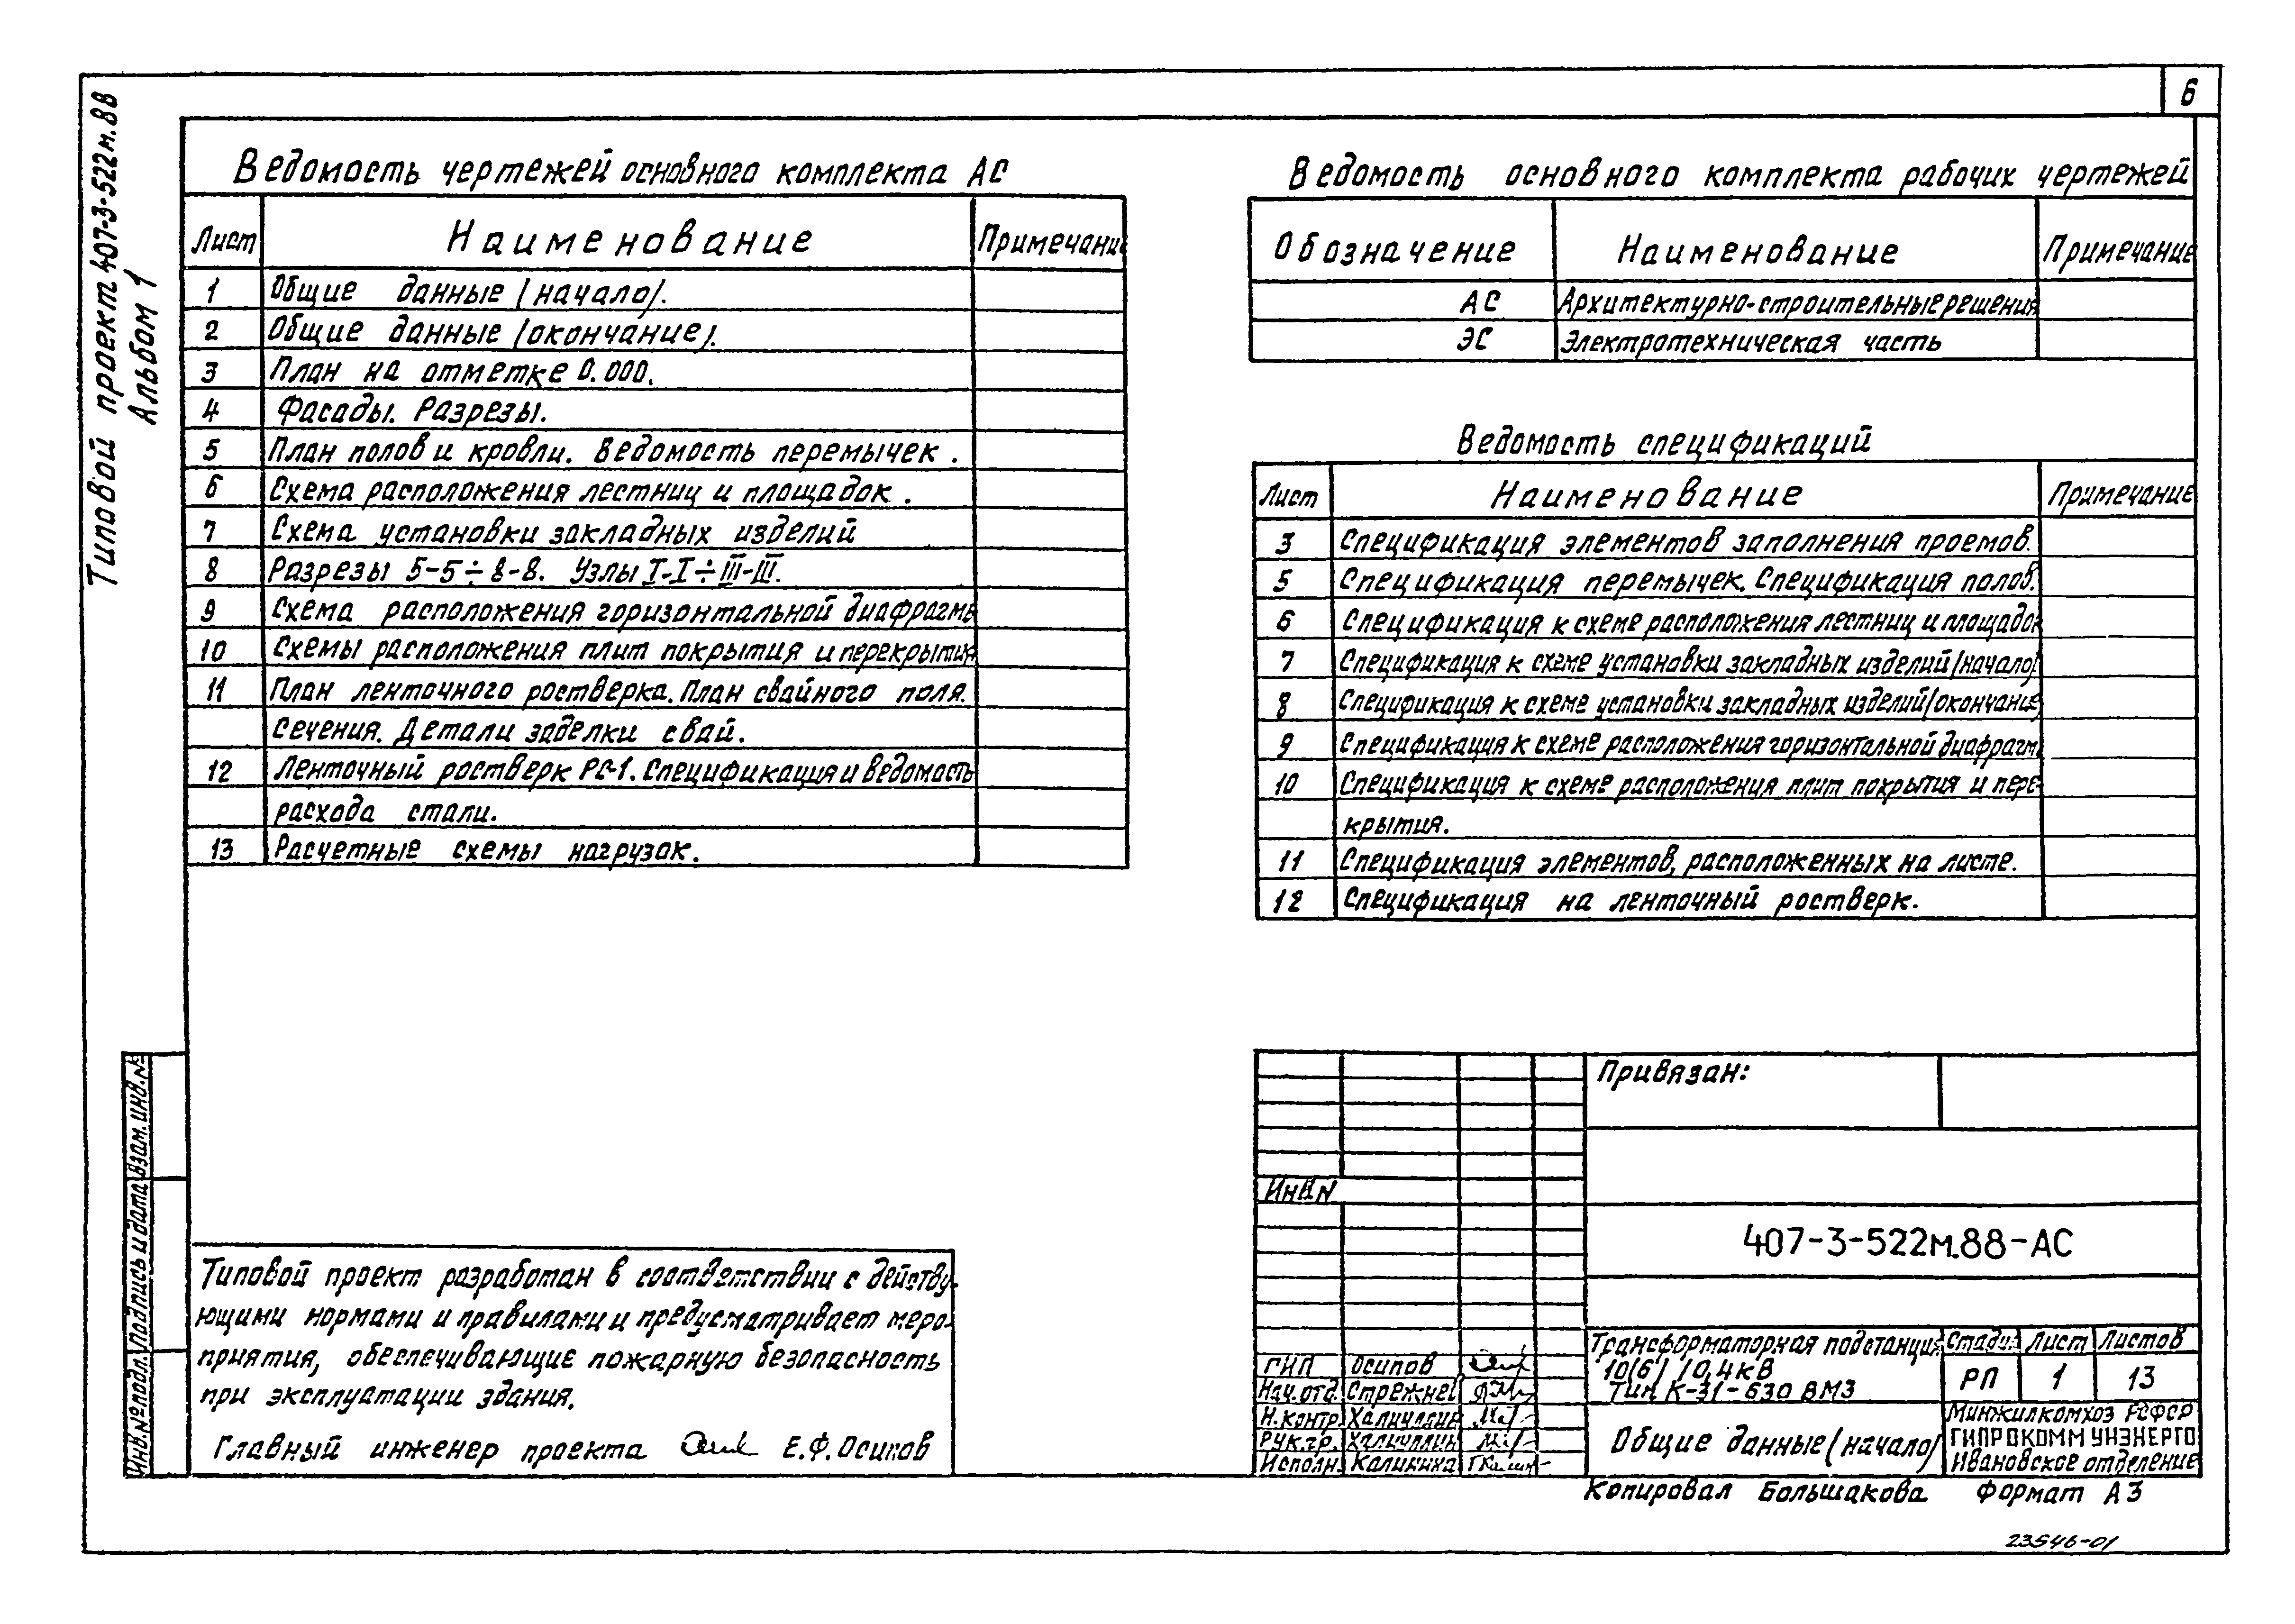 6
Типовой проект 407-3-522м.88
Альбом 1
Ведомость чертежей основного комплекта АС
Лист Наименование Примечание
1 Общие данные (начало).
2 Общие данные (окончание).
3 План на отметке 0.000.
4 Фасады. Разрезы.
5 План полов и кровли. Ведомость перемычек.
6 Схема расположения лестниц и площадок.
7 Схема установки закладных изделий
8 Разрезы 5-5÷8-8. Узлы I-I÷III-III.
9 Схема расположения горизонтальной диафрагмы
10 Схемы расположения плит покрытия и перекрытия
11 План ленточного ростверка. План свайного поля.
Сечения. Детали заделки свай.
12 Ленточный ростверк РС-1. Спецификация и ведомость
расхода стали.
13 Расчетные схемы нагрузок.
Ведомость основного комплекта рабочих чертежей
Обозначение Наименование Примечание
АС Архитектурно-строительные решения
ЭС Электротехническая часть
Ведомость спецификаций
Лист Наименование Примечание
3 Спецификация элементов заполнения проемов.
5 Спецификация перемычек. Спецификация полов.
6 Спецификация к схеме расположения лестниц и площадок
7 Спецификация к схеме установки закладных изделий (начало)
8 Спецификация к схеме установки закладных изделий (окончание)
9 Спецификация к схеме расположения горизонтальной диафрагм
10 Спецификация к схеме расположения плит покрытия и пере-
крытия.
11 Спецификация элементов, расположенных на листе.
12 Спецификация на ленточный ростверк.
Инв.№подл. Подпись и дата Взам.инв.№
Типовой проект разработан в соответствии с действу-
ющими нормами и правилами и предусматривает меро-
приятия, обеспечивающие пожарную безопасность
при эксплуатации здания.
Главный инженер проекта Е.Ф.Осипов
Привязан:
Инв.N
407-3-522м.88-АС
ГИП Осипов
Нач.отд. Стрежнев
Н.контр. Халиуллин
Рук.гр. Халиуллин
Исполн. Калинина
Трансформаторная подстанция
10(6)/0,4кВ
Тип К-31-630 ВМЗ
Стадия Лист Листов
РП 1 13
Общие данные (начало)
Минжилкомхоз РСФСР
ГИПРОКОММУНЭНЕРГО
Ивановское отделение
Копировал Большакова Формат А3
23546-01